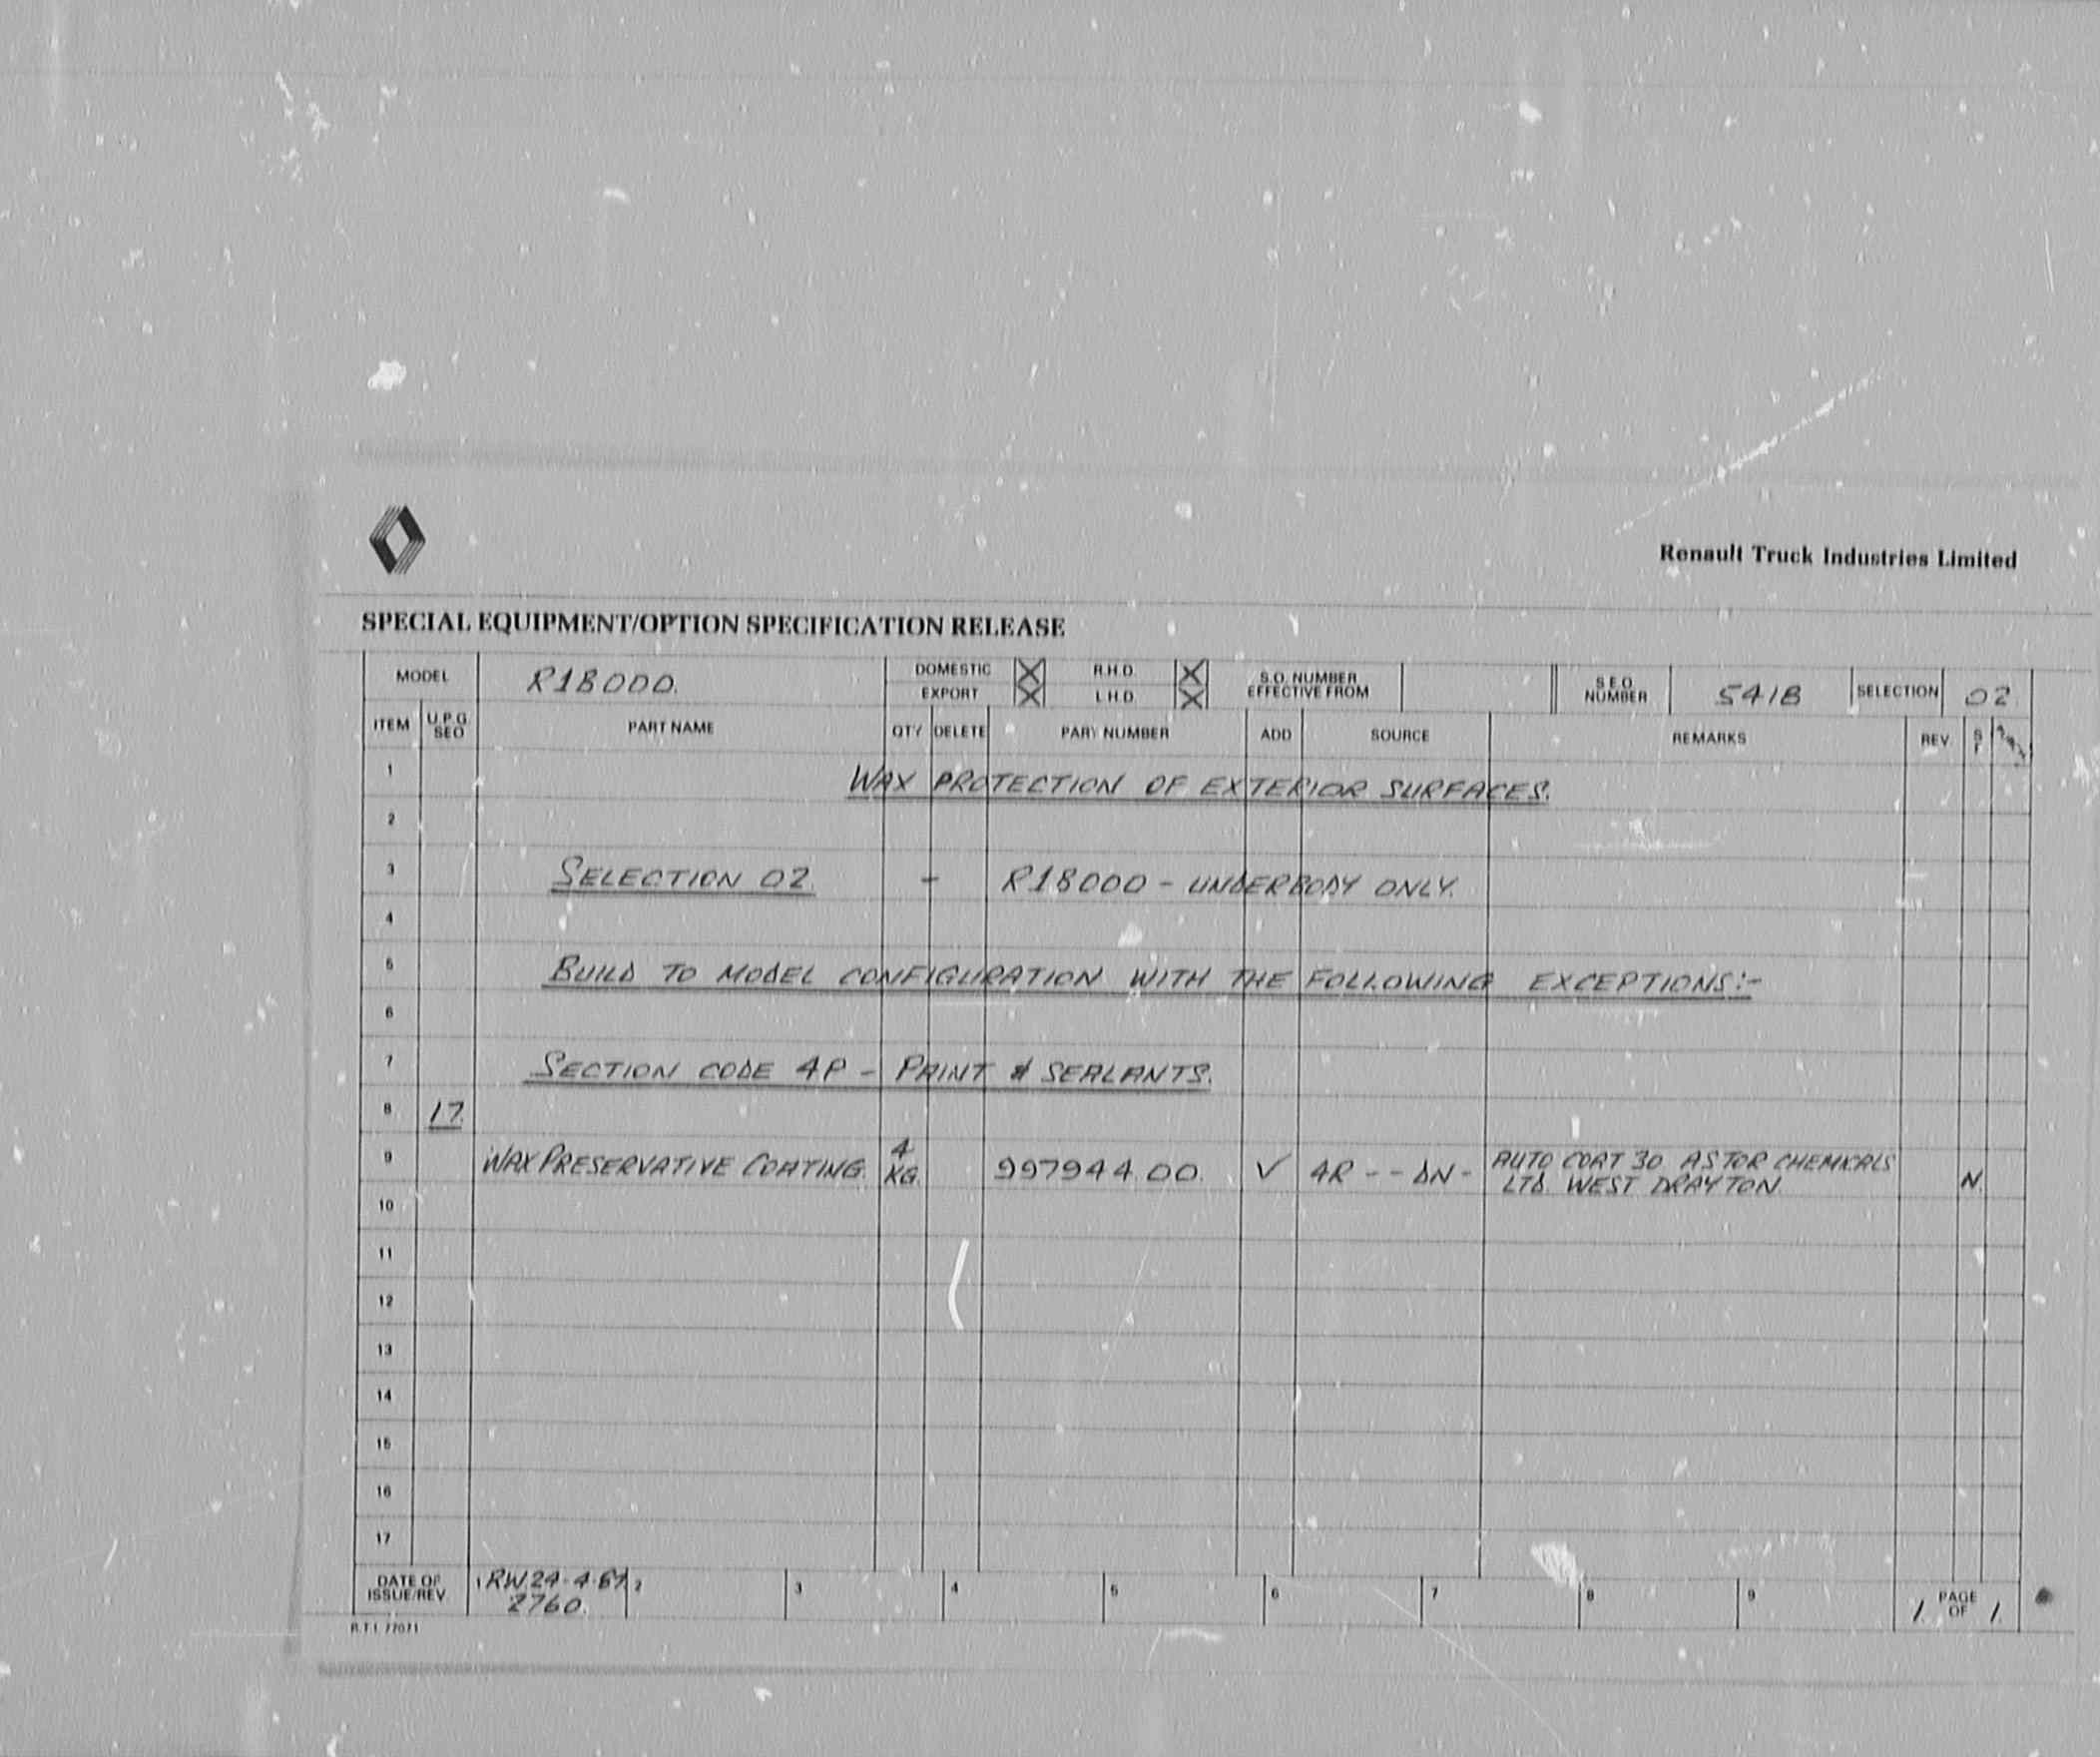 Renault Truck Industries Limited
SPECIAL EQUIPMENT/OPTION SPECIFICATION RELEASE
MODEL R18000. DOMESTIC X R.H.D. X S.O. NUMBER EFFECTIVE FROM S.E.O. NUMBER 541B SELECTION 02
EXPORT X L.H.D. X
ITEM U.P.G. SEO PART NAME QTY DELETE PART NUMBER ADD SOURCE REMARKS REV
1 WAX PROTECTION OF EXTERIOR SURFACES.
2
3 SELECTION 02. - R18000 - UNDERBODY ONLY.
4
5 BUILD TO MODEL CONFIGURATION WITH THE FOLLOWING EXCEPTIONS:-
6
7 SECTION CODE 4P - PAINT & SEALANTS.
8 17.
9 WAX PRESERVATIVE COATING. 4 KG. 997944.00. ✓ 4R - - DN - AUTO COAT 30 ASTOR CHEMICALS
LTD. WEST DRAYTON. N.
10
11
12
13
14
15
16
17
DATE OF ISSUE/REV 1 RW 2 3 4 5 6 7 8 9 1. PAGE OF 1.
2760.
R.T.I. 77071